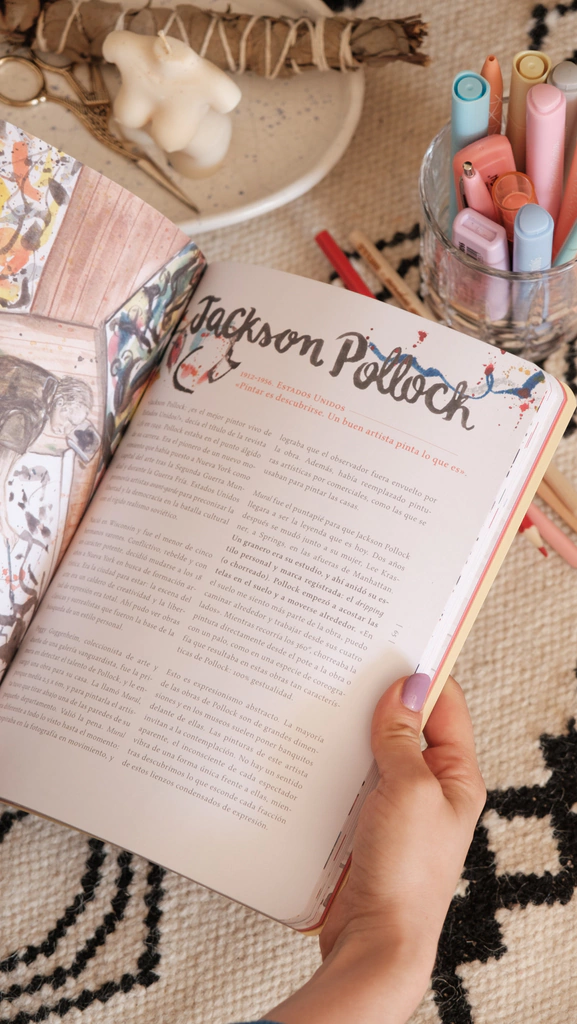 Jackson Pollock
1912-1956. ESTADOS UNIDOS
«Pintar es descubrirse. Un buen artista pinta lo que es».
Pollock: ¿es el mejor pintor vivo de
Estados Unidos?, decía el título de la revista
Pollock estaba en el punto álgido
carrera. Era el pionero de un nuevo mo-
que había puesto a Nueva York como
del arte tras la Segunda Guerra Mun-
durante la Guerra Fría. Estados Unidos
para preconizar la
y la democracia en la batalla cultural
el rígido realismo soviético.
en Wisconsin y fue el menor de cinco
varones. Conflictivo, rebelde y con
potente, decidió mudarse a los 18
a Nueva York en busca de formación ar-
Era la ciudad para estar: la escena del
en un caldero de creatividad y la liber-
expresarse era total. Ahí pudo ver obras
y surrealistas que fueron la base de la
de un estilo personal.
Guggenheim, coleccionista de arte y
de una galería vanguardista, fue la pri-
en detectar el talento de Pollock, y le en-
obra para su casa. La llamó Mural:
6 m, y para pintarla el artis-
que tirar abajo una de las paredes de su
departamento. Valió la pena. Mural
a todo lo visto hasta el momento:
en la fotografía en movimiento, y
lograba que el observador fuera envuelto por
la obra. Además, había reemplazado pintu-
ras artísticas por comerciales, como las que se
usaban para pintar las casas.
Mural fue el puntapié para que Jackson Pollock
llegara a ser la leyenda que es hoy. Dos años
después se mudó junto a su mujer, Lee Kras-
ner, a Springs, en las afueras de Manhattan.
Un granero era su estudio, y ahí anidó su es-
tilo personal y marca registrada: el dripping
(o chorreado). Pollock empezó a acostar las
telas en el suelo y a moverse alrededor. «En
el suelo me siento más parte de la obra, puedo
caminar alrededor y trabajar desde sus cuatro
lados». Mientras recorría los 360°, chorreaba la
pintura directamente desde el pote a la obra o
con un palo, como en una especie de coreogra-
fía que resultaba en estas obras tan caracterís-
ticas de Pollock, 100% gestualidad.
Esto es expresionismo abstracto. La mayoría
de las obras de Pollock son de grandes dimen-
siones y en los museos suelen poner banquitos
delante de ellas. Las pinturas de este artista
invitan a la contemplación. No hay un sentido
aparente, el inconsciente de cada espectador
vibra de una forma única frente a ellas, mien-
tras descubrimos lo que esconde cada fracción
de estos lienzos condensados de expresión.
151